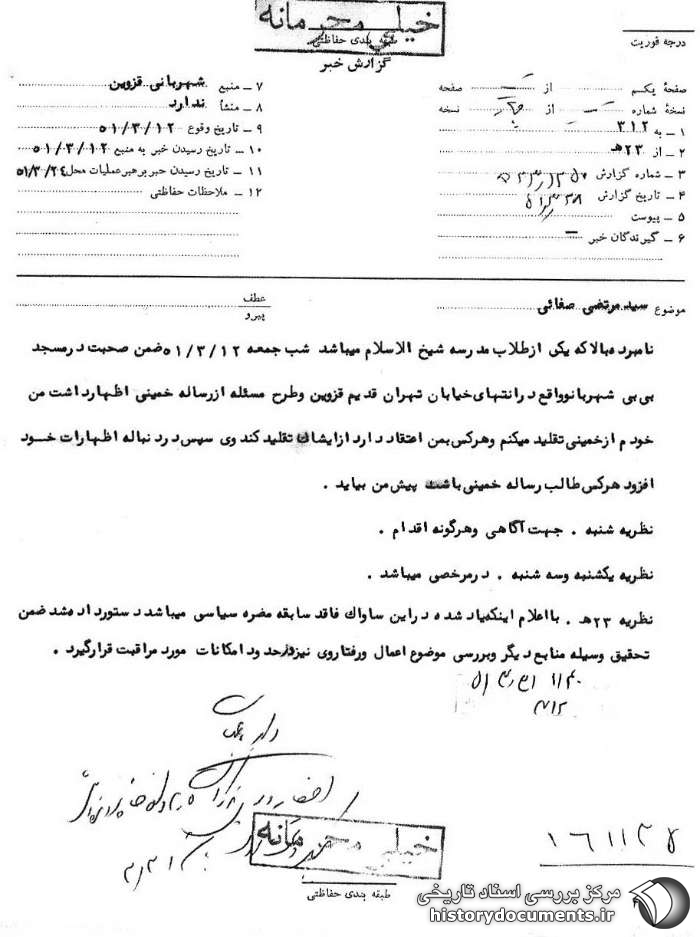 خیلی محرمانه
طبقه بندی حفاظتی
گزارش خبر
درجه فوریت
صفحهٔ یکم از صفحه
نسخهٔ شماره از نسخه
۱ ـ به ۳۱۲
۲ ـ از ۲۳ﻫ
۳ ـ شماره گزارش
۴ ـ تاریخ گزارش
۵ ـ پیوست
۶ ـ گیرندگان خبر ـ
۷ ـ منبع شهربانی قزوین
۸ ـ منشأ ندارد
۹ ـ تاریخ وقوع ۵۱/۳/۱۲
۱۰ ـ تاریخ رسیدن خبر به منبع ۵۱/۳/۱۲
۱۱ ـ تاریخ رسیدن خبر برهبر عملیات محل ۵۱/۳/۲۴
۱۲ ـ ملاحظات حفاظتی
موضوع سید مرتضی صفائی
عطف
پیرو
نامبرده بالا که یکی از طلاب مدرسه شیخ الاسلام میباشد شب جمعه ۵۱/۳/۱۲ ضمن صحبت در مسجد
بی بی شهربانو واقع در انتهای خیابان تهران قدیم قزوین وطرح مسئله از رساله خمینی اظهار داشت من
خودم از خمینی تقلید میکنم وهرکس بمن اعتقاد دارد از ایشان تقلید کند وی سپس در دنباله اظهارات خود
افزود هرکس طالب رساله خمینی باشد پیش من بیاید .
نظریه شنبه . جهت آگاهی وهرگونه اقدام .
نظریه یکشنبه وسه شنبه . در مرخصی میباشد .
نظریه ۲۳ﻫ . با اعلام اینکه یاد شده در این ساواک فاقد سابقه مضره سیاسی میباشد دستور داده شد ضمن
تحقیق وسیله منابع دیگر وبررسی موضوع اعمال ورفتار وی نیز در حدود امکانات مورد مراقبت قرار گیرد .
خیلی محرمانه
طبقه بندی حفاظتی
۱۶۱۱۲۵
مرکز بررسی اسناد تاریخی
historydocuments.ir